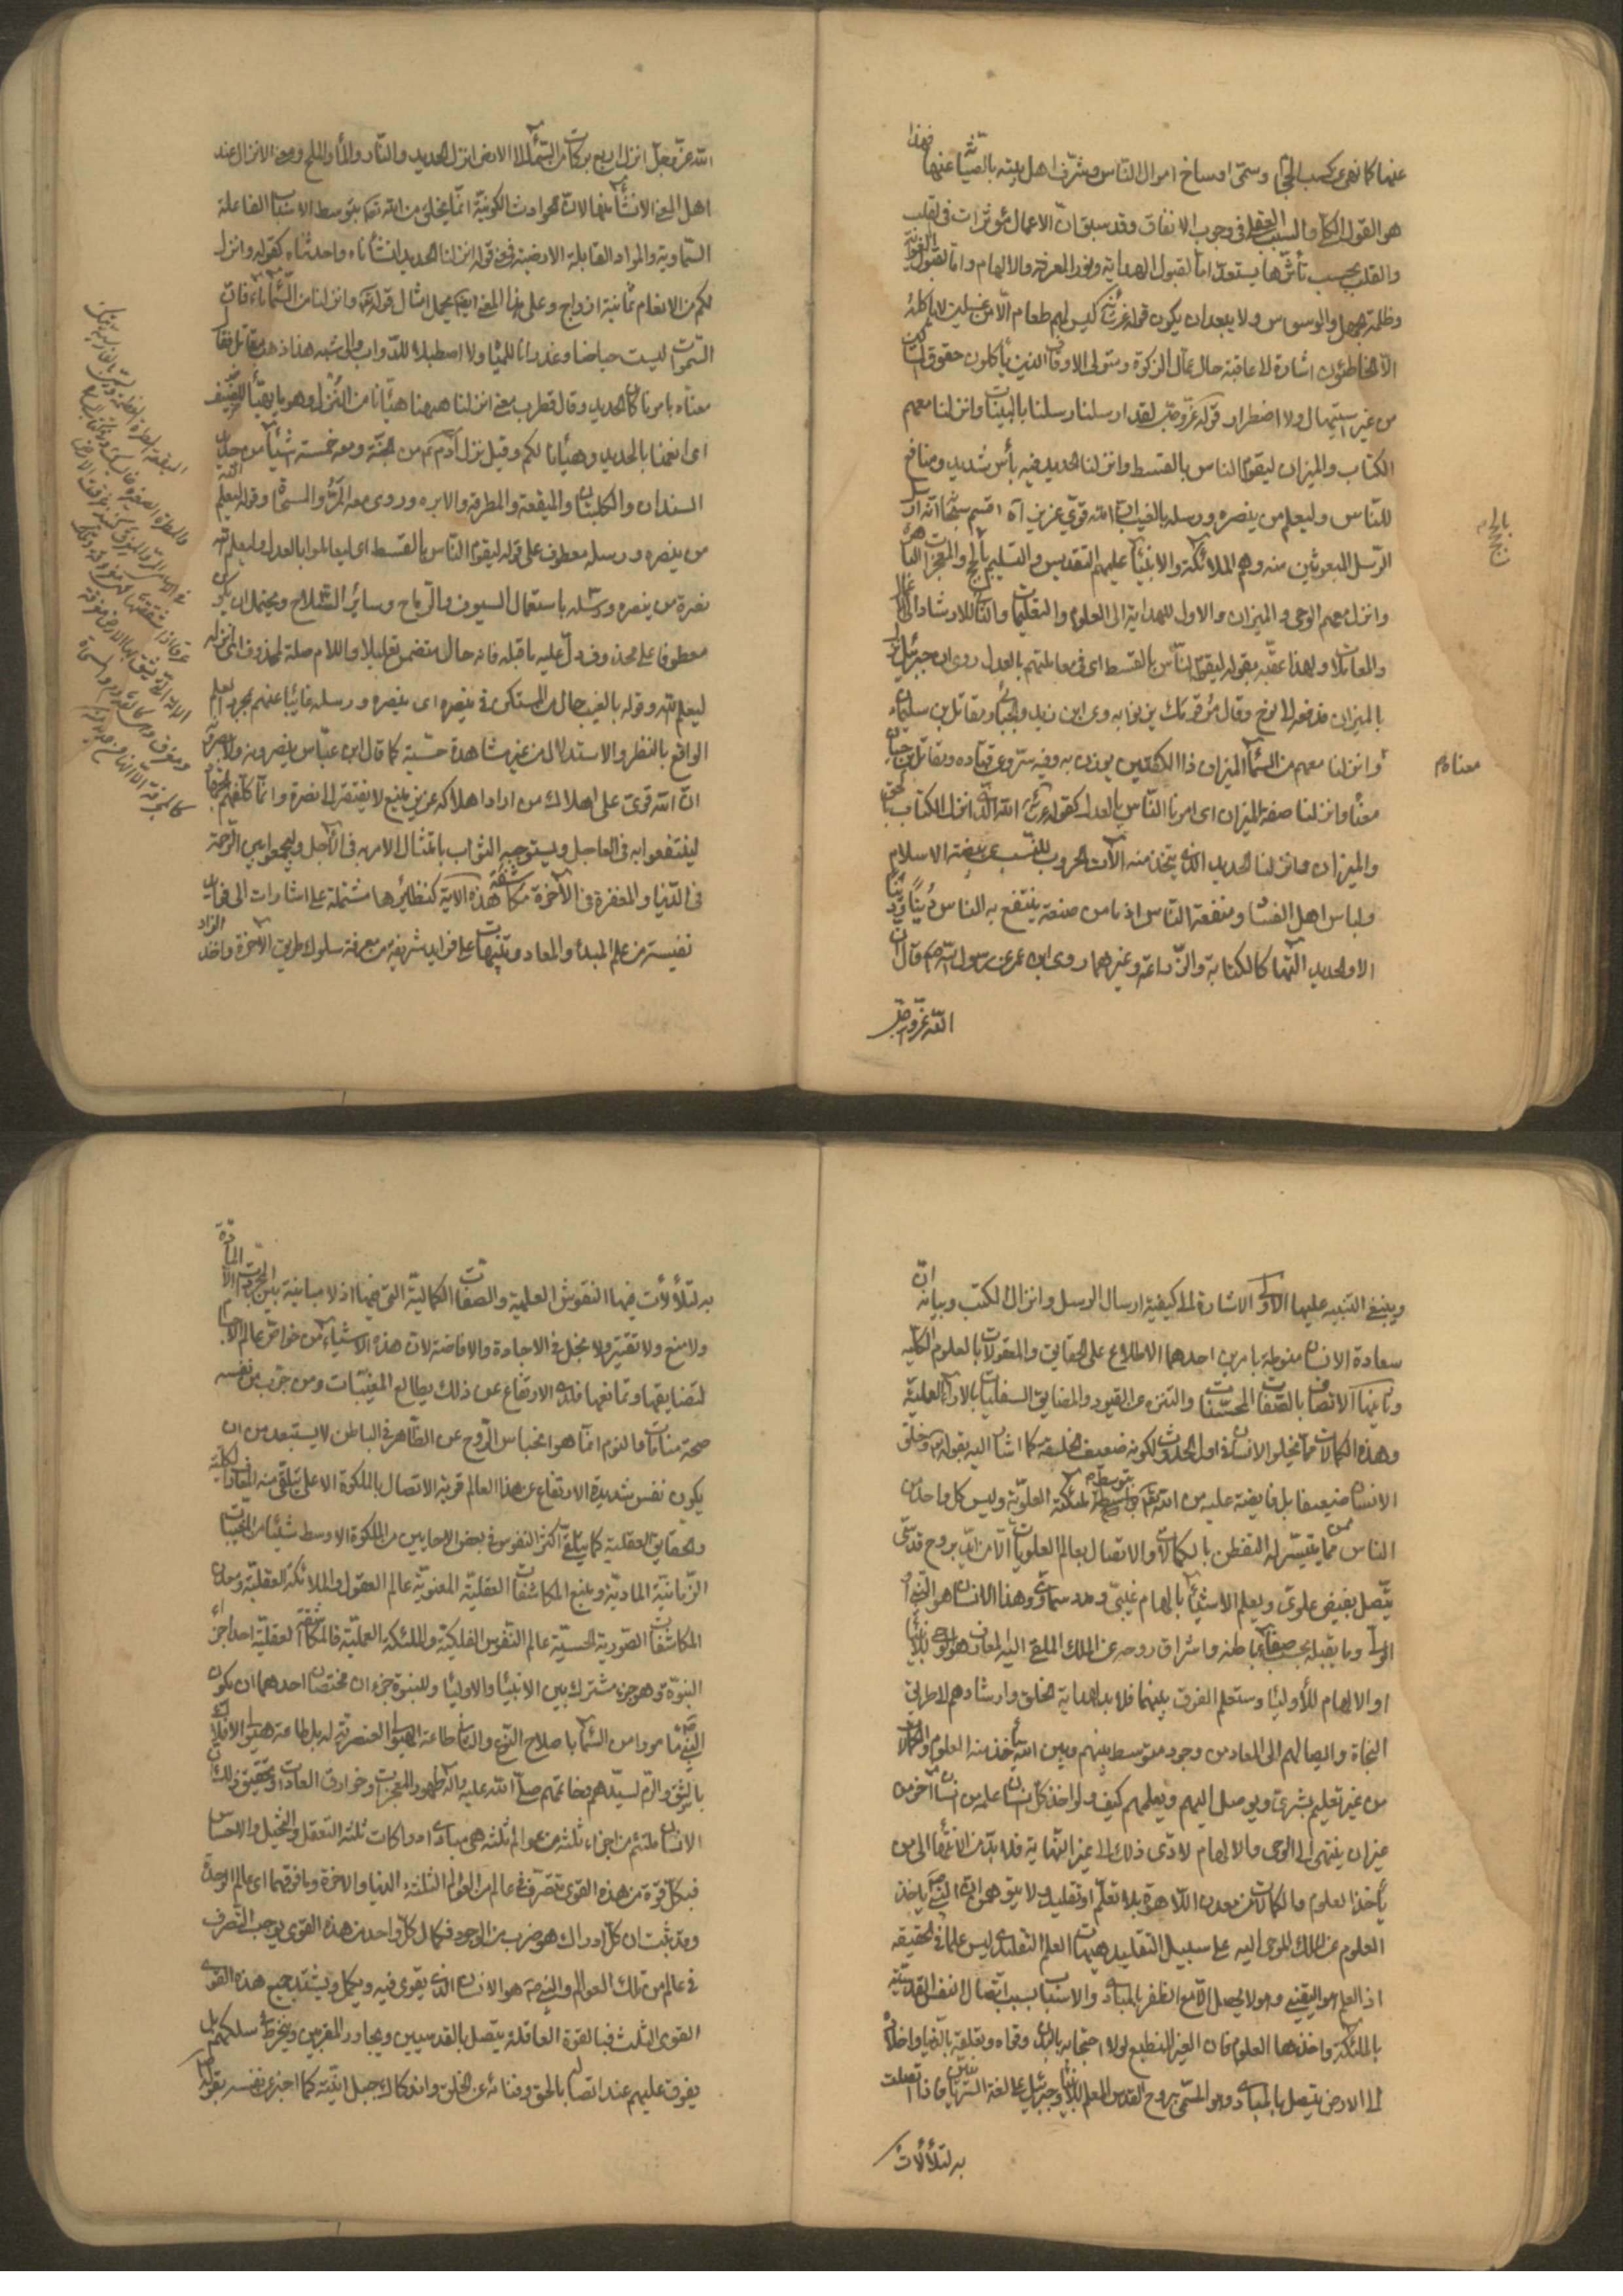 عنها كما نهى عن كسب الحجام وسمى اوساخ اموال الناس وشرف اهل بيته بالصيانة عنها فهذا
هو القول الكلي والسبب العقلي في وجوب الانفاق وقد سبق ان الاعمال مؤثرات في القلب
والقلب بحسب تأثرها يستعد اما لقبول الهداية ونور المعرفة والالهام واما لقبول الغواية
وظلمة الجهل والوسواس ولا يبعد ان يكون قوله ليس لهم طعام الا من غسلين لا ياكله
الا الخاطئون اشارة لا عاقبة حال عمال الزكوة ومتولى الاوقاف الذين ياكلون حقوق الناس
من غير استيهال ولا اضطرار قوله عز وجل لقد ارسلنا رسلنا بالبينات وانزلنا معهم
الكتاب والميزان ليقوم الناس بالقسط وانزلنا الحديد فيه بأس شديد ومنافع
للناس وليعلم الله من ينصره ورسله بالغيب ان الله قوي عزيز اقسم سبحانه انه ارسل
الرسل المبعوثين منه وهم الملائكة والانبياء عليهم التقديس والتسليم بالحجج والمعجزات
وانزل معهم الوحى والميزان والاول للهداية الى العلوم والتعليمات والثاني للارشاد الى الاعمال
والمعاملات ولهذا عقبه بقوله ليقوم الناس بالقسط اى في معاملتهم بالعدل روى ان جبرئيل نزل
بالميزان فدفعه الى نوح وقال مر قومك يزنوا به وعن ابن زيد والجبائي ومقاتل بن سليمان
وانزلنا معهم من السماء الميزان ذا الكفتين يوزن به وعن قتادة ومقاتل بن حيان
معناه وانزلنا صفة الميزان اى امرنا الناس بالعدل كقوله الله الذي انزل الكتاب بالحق
والميزان وانزلنا الحديد الذي يتخذ منه آلات الحروب للذب عن بيضة الاسلام
ولباس اهل الفساد ومنفعة الناس اذ ما من صنعة ينتفع به الناس دينا ودنيا
الا والحديد آلتها كالكتابة والزراعة وغيرهما روى ابن عمر عن رسول الله ص قال ان
الله عز وجل
معناه م
الله عز وجل انزل اربع بركات من السماء الى الارض انزل الحديد والنار والماء والملح ومعنى الانزال عند
اهل المعنى الانشاء منها لان الحوادث الكونية انما يخلق من الله تعالى بتوسط الاسباب الفاعلة
السماوية والمواد القابلة الارضية فمعنى قوله انزلنا الحديد انشأناه واحدثناه كقوله وانزل
لكم من الانعام ثمانية ازواج وعلى هذا المعنى ايضا يحمل امثال قوله تعالى وانزلنا من السماء ماء فان
السموات ليست حياضا وغدرانا للمياه ولا اصطبلا للدواب والى شبه هذا ذهب مقاتل فقال
معناه بامرنا كان الحديد وقال قطرب معنى انزلنا ههنا هيأنا من النزل وهو ما يهيأ للضيف
اى انعمنا بالحديد وهيأنا لكم وقيل نزل آدم ع من الجنة ومعه خمسة اشياء من حديد
السندان والكلبتان والميقعة والمطرقة والابرة وروى معه المر والمسحاة وقوله ليعلم الله
من ينصره ورسله معطوف على قوله ليقوم الناس بالقسط اى ليعاملوا بالعدل وليعلم الله
نصرة من ينصره ورسله باستعمال السيوف والرماح وسائر السلاح ويحتمل ان يكون
معطوفا على محذوف دل عليه ما قبله فانه حال متضمن تعليلا واللام صلة لمحذوف اى انزله
ليعلم الله وقوله بالغيب حال من المستكن في ينصره اى ينصره ورسله غائبا عنهم بمجرد العلم
الواقع بالنظر والاستدلال من غير مشاهدة حسية كما قال ابن عباس ينصرونه ولا يبصرونه
ان الله قوي على اهلاك من اراد اهلاكه عزيز منيع لا يفتقر الى نصرة وانما كلفهم الجهاد
لينتفعوا به في العاجل ويستوجبوا الثواب بامتثال الامر به في الآجل وليجمعوا بين الرحمة
في الدنيا والمغفرة في الآخرة مكاشفة هذه الآية كنظائرها مشتملة على اشارات الى
نفيسة من علم المبدأ والمعاد وتنبيهات على فوايد شريفة من معرفة سلوك طريق الآخرة واخذ الزاد
وينبغي التنبيه عليها الاولى الاشارة الى كيفية ارسال الرسل وانزال الكتب وبيانه ان
سعادة الانسان منوطة بامرين احدهما الاطلاع على الحقايق والمعقولات بالعلوم الكلية
وثانيهما الاتصاف بالصفات المحسنات والتنزه عن القيود والمضايق السفليات بالآراء العملية
وهذه الكمالات مما يخلو الانسان في اول الحدوث لكونه ضعيف الخلقة كما اشار اليه بقوله وخلق
الانسان ضعيفا بل فايضة عليه من الله تعالى بتوسط الملئكة العلوية وليس كل واحد من
الناس ممن يتيسر له التفطن بالكمالات والاتصال بعالم العلويات الا من ايد بروح قدسي
يتصل بفيض علوى ويعلم الاشياء بالهام غيبي ومدد سماوى وهذا الانسان هو النبي او
الولي وما يقبله بحسب صفاء باطنه واشراق روحه عن الملك الملقى اليه المعارف هو الوحى للانبياء
او الالهام للأولياء وستعلم الفرق بينهما فلا بد لهداية الخلق وارشادهم الى طريق
النجاة وايصالهم الى المعاد من وجود متوسط بينهم وبين الله يأخذ منه العلوم والكمالات
من غير تعليم بشرى ويوصل اليهم ويعلمهم كيف ولو اخذ كل انسان علمه من انسان آخر من
غير ان ينتهى الى الوحى والالهام لادى ذلك الى غير النهاية فلا بد من الانتهاء الى من
يأخذ العلوم والكمالات من معدن اللاهوت بلا تعلم او تقليد ولا يتوهمن ان النبي ص ياخذ
العلوم عن الملك الموحى اليه على سبيل التقليد هيهات العلم التقليدى ليس علما في الحقيقة
اذ العلم هو اليقيني وهو لا يحصل الا مع الظفر بالمبادى والاسباب بسبب اتصال النفس القدسية
بالملئكة واخذها العلوم فان الغير المنطبع لولا احتجابه بالبدن وقواه وتعلقه بالدنيا واخلاده
الى الارض يتصل بالمبادى وهو المسمى بروح القدس المعلم للانبياء وجبرئيل على لغة السريانيين فاذا اتصلت
به لتلألأت
به لتلألأت فيها النقوش العلمية والصفات الكمالية التي فيها اذ لا مباينة بين المجردات الا المادة
ولا منع ولا تقتير ولا بخل في الاجادة والافاضة لان هذه الاشياء من خواص عالم الاجسام
لتضايقها وتمانعها فلدى الارتفاع عن ذلك يطالع المغيبات ومن جرب من نفسه
صحة منامات والنوم انما هو انحباس الروح عن الظاهر في الباطن لا يستبعد من ان
يكون نفس شديدة الارتفاع عن هذا العالم قوية الاتصال بالملكوت الاعلى يتلقى منه المعارف الكلية
والحقايق العقلية كما يتلقى اكثر النفوس في بعض الاحايين من الملكوت الاوسط شيئا من المغيبات
الزمانية المادية ومنبع المكاشفات العقلية المعنوية عالم العقول والملائكة العقلية ومعدن
المكاشفات الصورية الحسية عالم النفوس الفلكية والملئكة العملية فالمكاشفة العقلية احد اجزاء
النبوة وهو جزء مشترك بين الانبياء والاولياء وللنبوة جزءان مختصان احدهما ان يكون
النبي ص مامورا من السماء باصلاح النوع والثاني طاعة الهيولى العنصرية له بل طاعة هيولى الافلاك
لسيدهم وخاتمهم صلى الله عليه وآله لظهور المعجزات وخوارق العادات وتحقيق ذلك ان
الانسان ملتئم من اجزاء ثلثة من عوالم ثلثة هي مبادى ادراكات ثلثة التعقل والتخيل والاحساس
فبكل قوة من هذه القوى يتصرف في عالم من العوالم الثلثة الدنيا والاخرة وما فوقهما اى عالم الوحدة
وقد ثبت ان كل ادراك هو ضرب من الوجود فكمال كل واحد من هذه القوى يوجب التصرف
في عالم من تلك العوالم والنبي ص هو الانسان الذي يقوى فيه ويكمل ويشتد جميع هذه القوى
القوى الثلث فبالقوة العاقلة يتصل بالقدسيين ويجاور المقربين وينخرط سلكهم بل
يفوق عليهم عند اتصاله بالحق وفنائه عن الخلق واندكاك جبل انيته كما اخبر عن نفسه بقوله